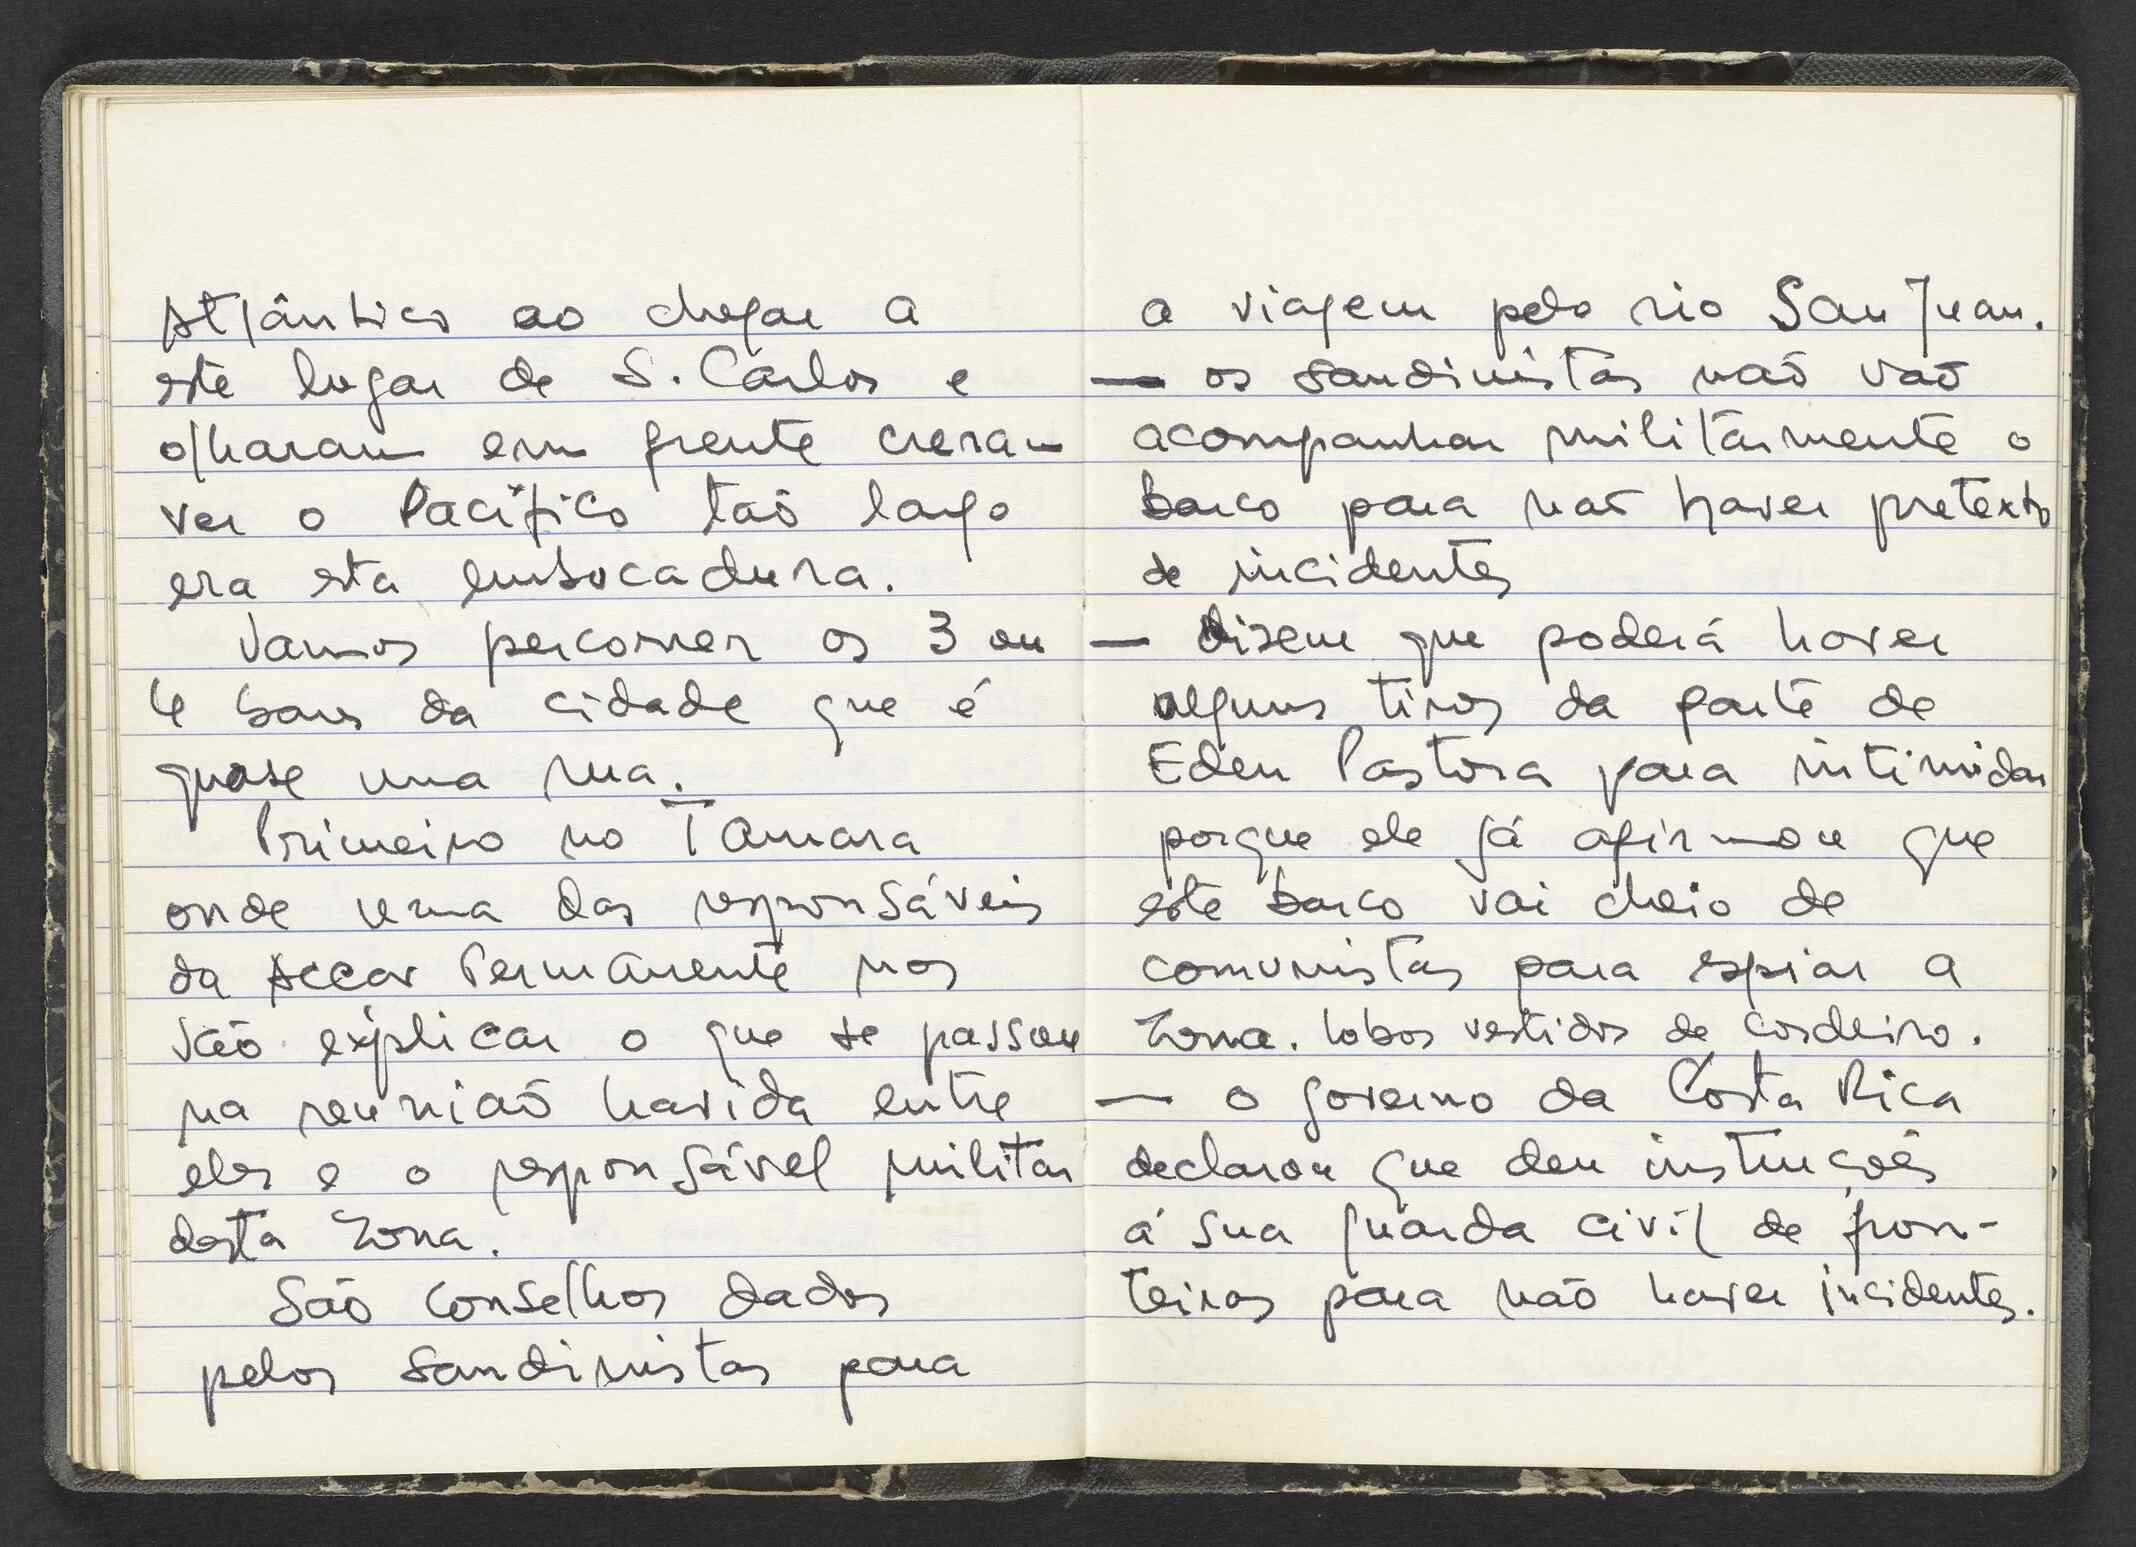 Atlântico ao chegar a
este lugar de S. Carlos e
olharam em frente creram
ver o Pacífico tão largo
era esta embocadura.
Vamos percorrer os 3 ou
4 bares da cidade que é
quase uma rua.
Primeiro no Tamara
onde uma das responsáveis
da Permanente nos
vão explicar o que se passou
na reunião havida entre
eles e o responsável militar
desta zona.
São conselhos dados
pelos sandinistas para
a viagem pelo rio San Juan.
— os sandinistas não vão
acompanhar militarmente o
barco para não haver pretexto
de incidentes
— disem que poderá haver
alguns tiros da parte de
Eden Pastora para intimidar
porque ele já afirmou que
este barco vai cheio de
comunistas para espiar a
zona. lobos vestidos de cordeiro.
— o governo da Costa Rica
declarou que deu instruções
á sua guarda civil de fron-
teiras para não haver incidentes.